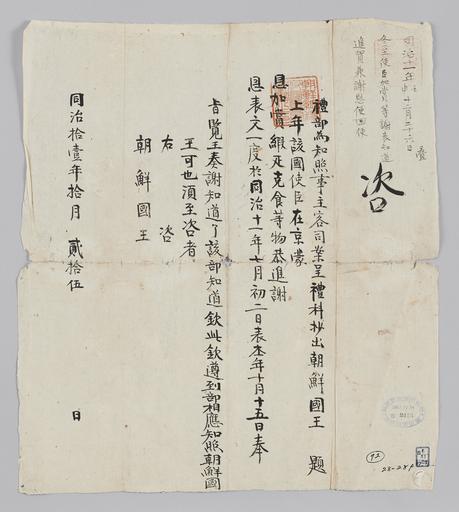 同治十一年壬申十二月二十六日
冬至使臣加賞等謝表知道
進賀兼謝恩使回便
咨
禮部為知照事主客司案呈禮科抄出朝鮮國王 題
上年該國使臣在京蒙
恩加賞緞疋克食等物恭進謝
恩表文一度於同治十一年七月初二日表本年十月十五日奉
旨覽王奏謝知道了該部知道欽此欽遵到部相應知照朝鮮國
王可也須至咨者
右 咨
朝鮮國王
同治拾壹年拾月 貳拾伍 日
92
23-289